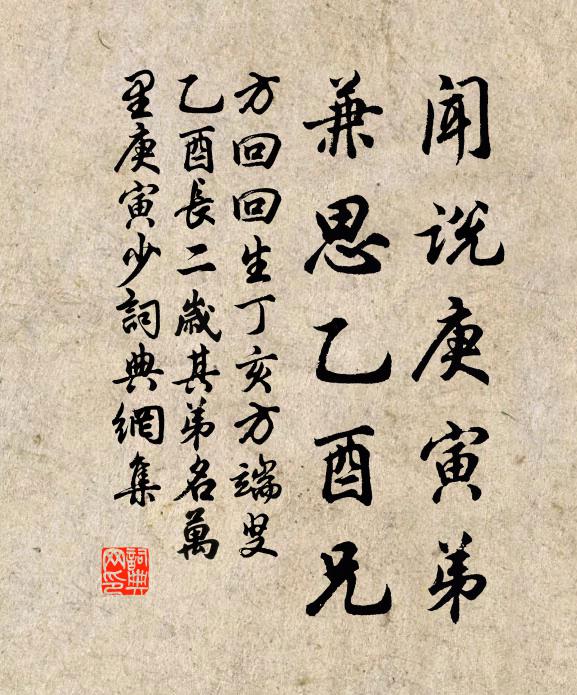 闻说庚寅弟
兼思乙酉兄
方回回生丁亥方端叟
乙酉長二歲其弟名萬
里庚寅少詞典網集
詞典
网印